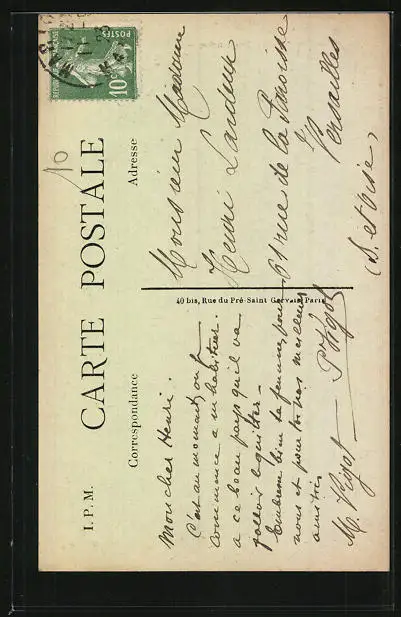 I. P. M.
CARTE POSTALE
10
Correspondance
Adresse
RÉPUBLIQUE FRANÇAISE
POSTES
10c
40 bis, Rue du Pré-Saint Gervais, Paris
Mon cher Henri.
C'est au moment, où l'on
commence a m'habituer.
a ce beau pays qu'il va
falloir le quitter -
Embrasse bien ta femme, pour
nous et pour toi nos meilleures
amitiés
M. Vigot
P Vigot
Monsieur Madame
Henri Landeux
61 rue de la Paroisse
Versailles
(S. et Oise)